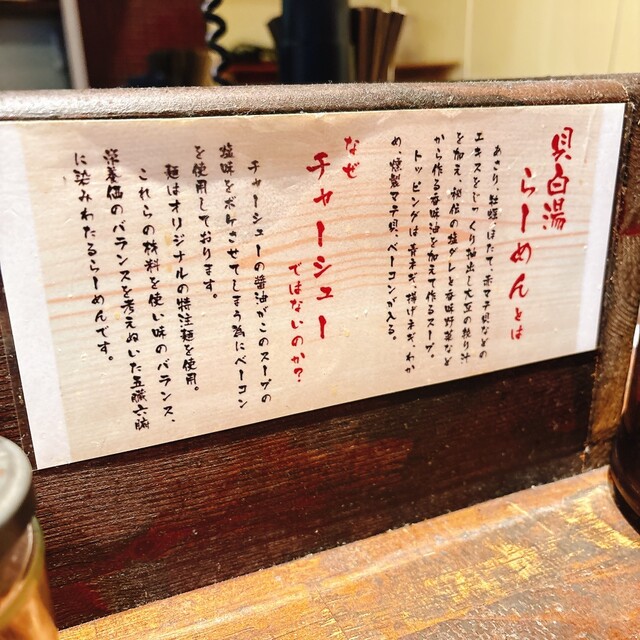 貝白湯
らーめんとは
あさり、牡蠣、ほたて、赤マテ貝などの
エキスをじっくり抽出し大豆の絞り汁
を加え、秘伝の塩ダレと香味野菜など
から作る香味油を加えて作るスープ。
トッピングは青ネギ、揚げネギ、わか
め、燻製マテ貝、ベーコンが入る。
なぜ
チャーシュー
ではないのか？
チャーシューの醤油がこのスープの
塩味をボケさせてしまう為にベーコン
を使用しております。
麺はオリジナルの特注麺を使用。
これらの材料を使い味のバランス、
栄養価のバランスを考えぬいた五臓六腑
に染みわたるらーめんです。